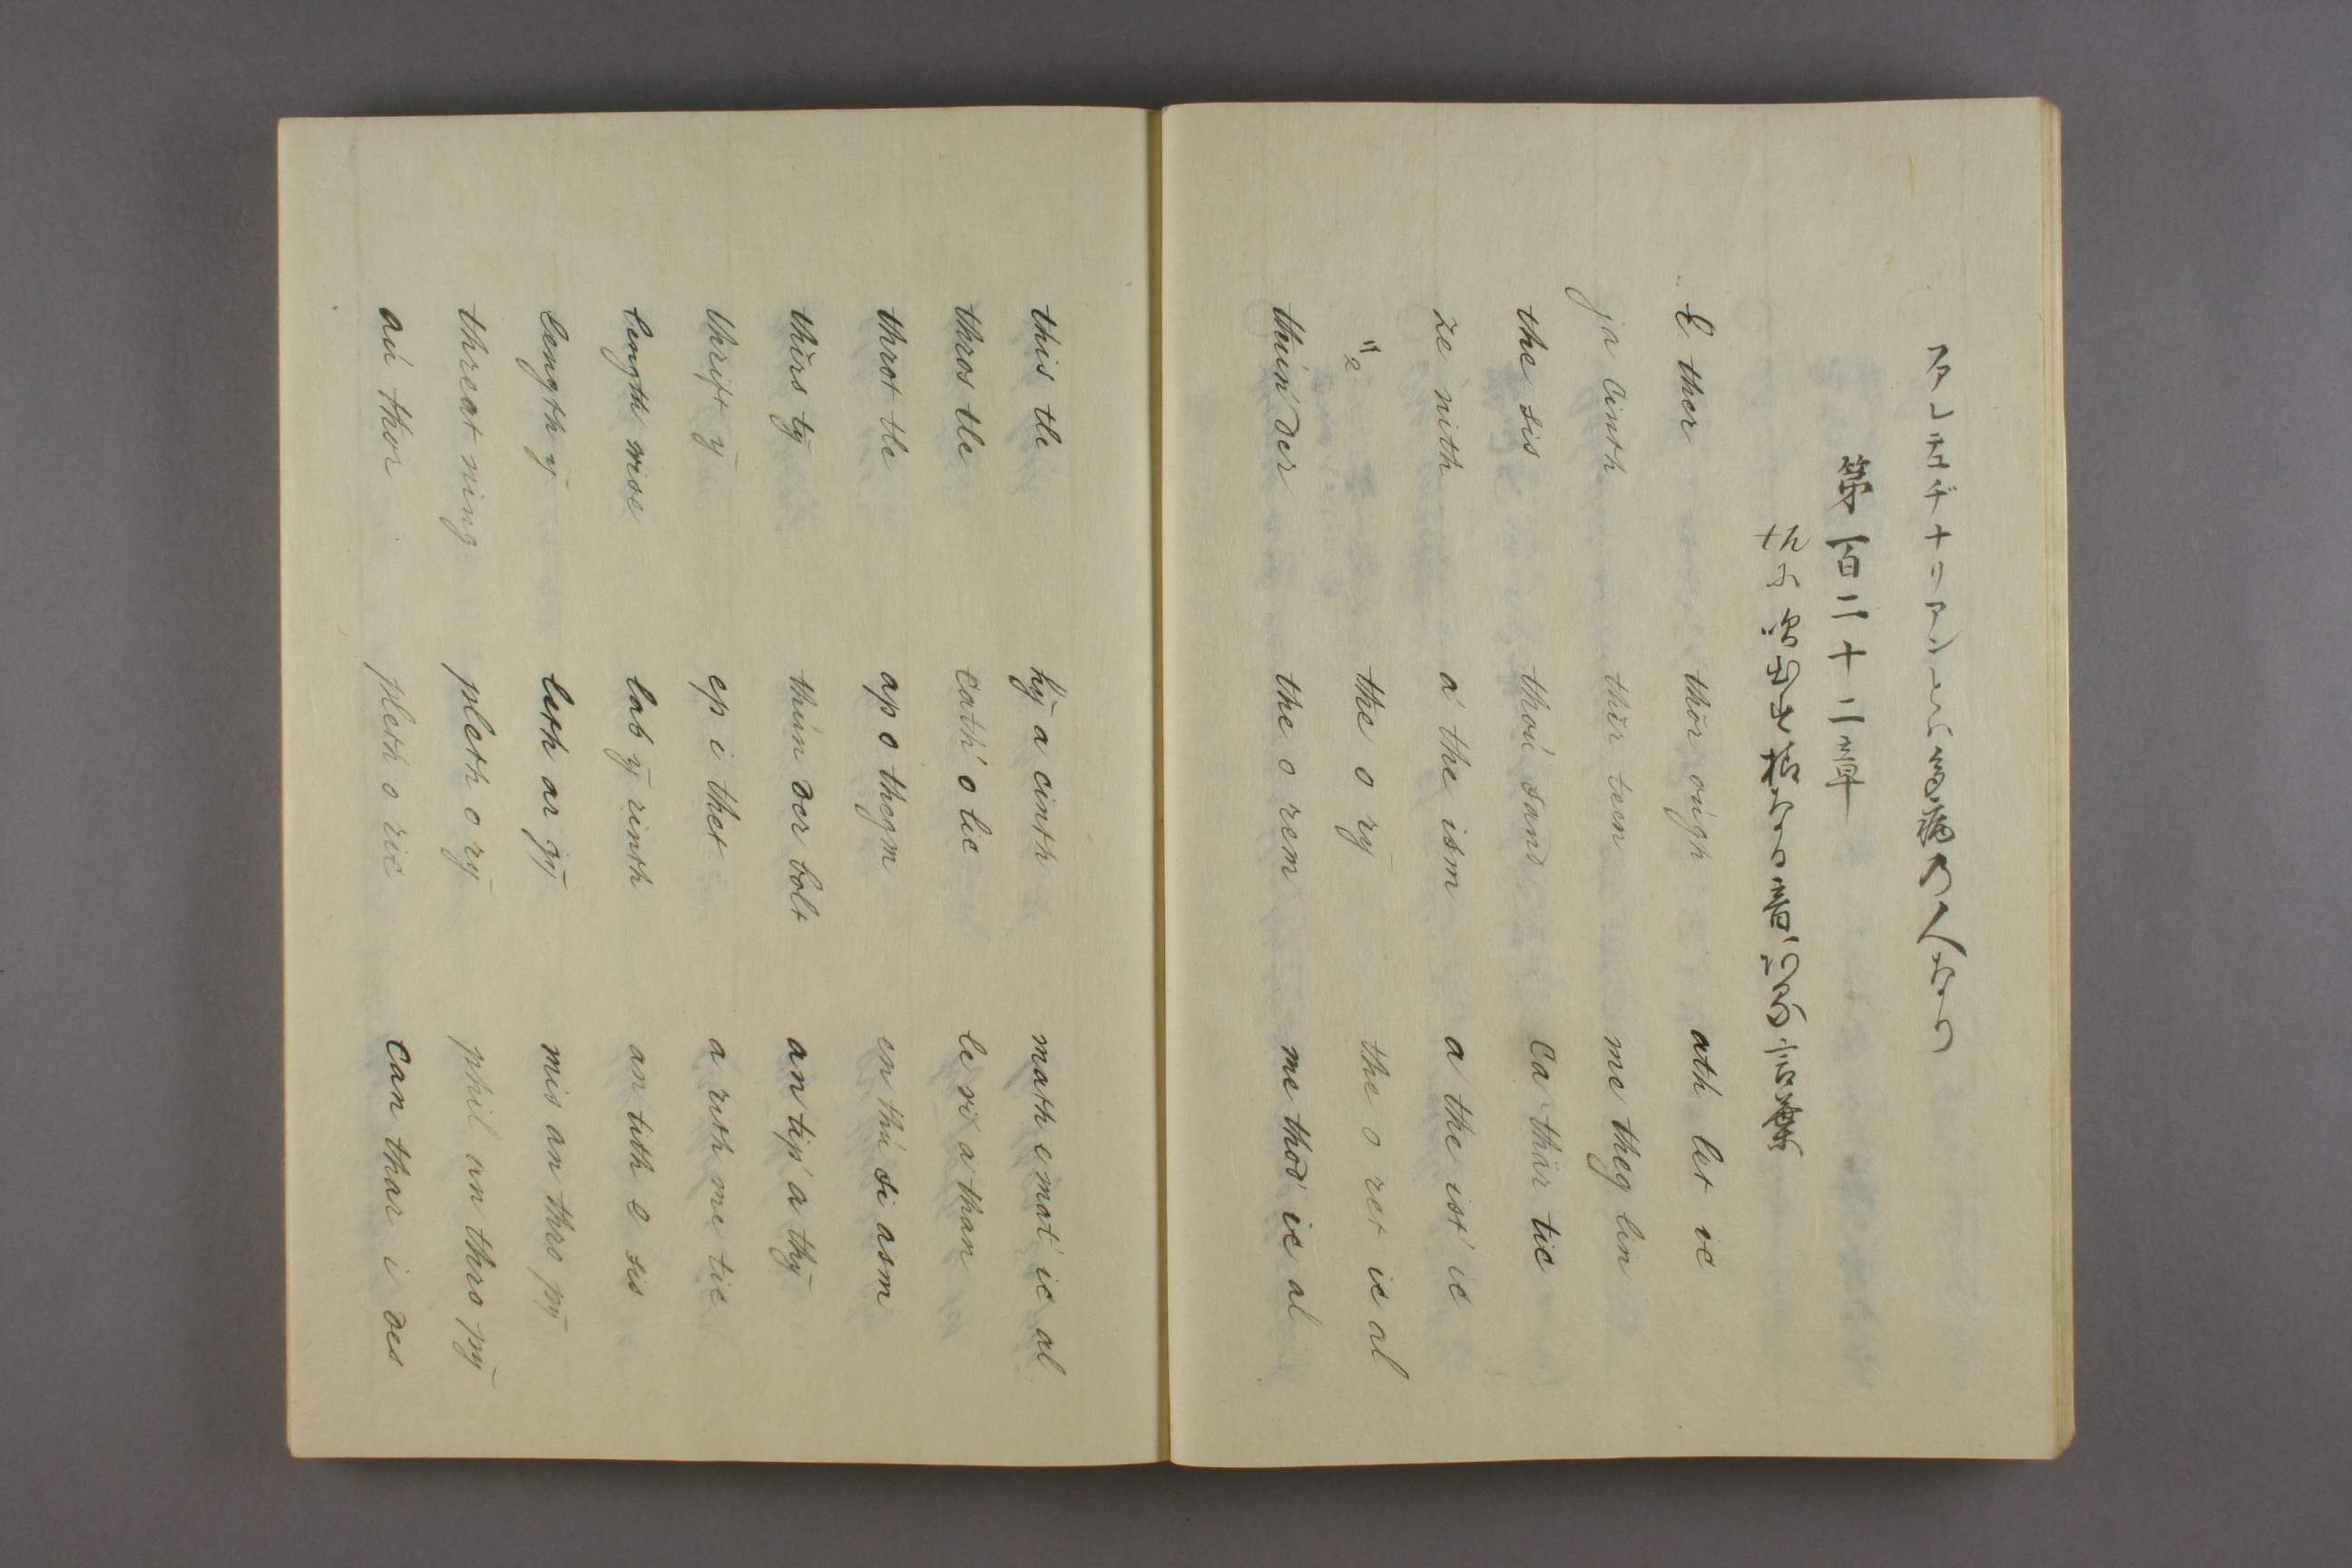 第一百二十二章
E ther thōr oúgh ath let ic
ja cinth thĭr teen me theg lin
the sis thoú sand Ca thär tic
ze nith a the ism a the ist ic
the o rȳ the o ret ic al
thún der the o rem me thod ic al
this tle hȳ a cinth math e mat ic al
thros tle cath o lic le vi a than
throt tle ap o thegm en thú si asm
thĭrs tȳ thún der bolt an tip a thȳ
thrift ȳ ep i thet a rith me tic
length wise lab ȳ rinth an tith e sis
length ȳ leth ar gȳ mis an thro pȳ
threat ning pleth o rȳ phil an thro pȳ
aú thor pleth o ric Can thar i des